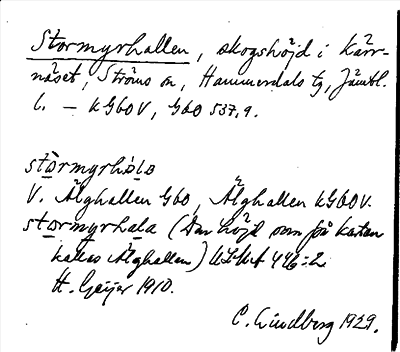 Stormyrhallen, skogshöjd i Kärr-
näset, Ströms sn, Hammerdals tg, Jämtl.
l. – KGbOV, GbO 537, 9.
stormyrhala
V. Älghallen GbO, Älghallen KGbOV.
stormyrhala (den höjd som på kartan
kallas Älghallen) ULMA 446:2.
H. Geijer 1910.
C. Lindberg 1929.